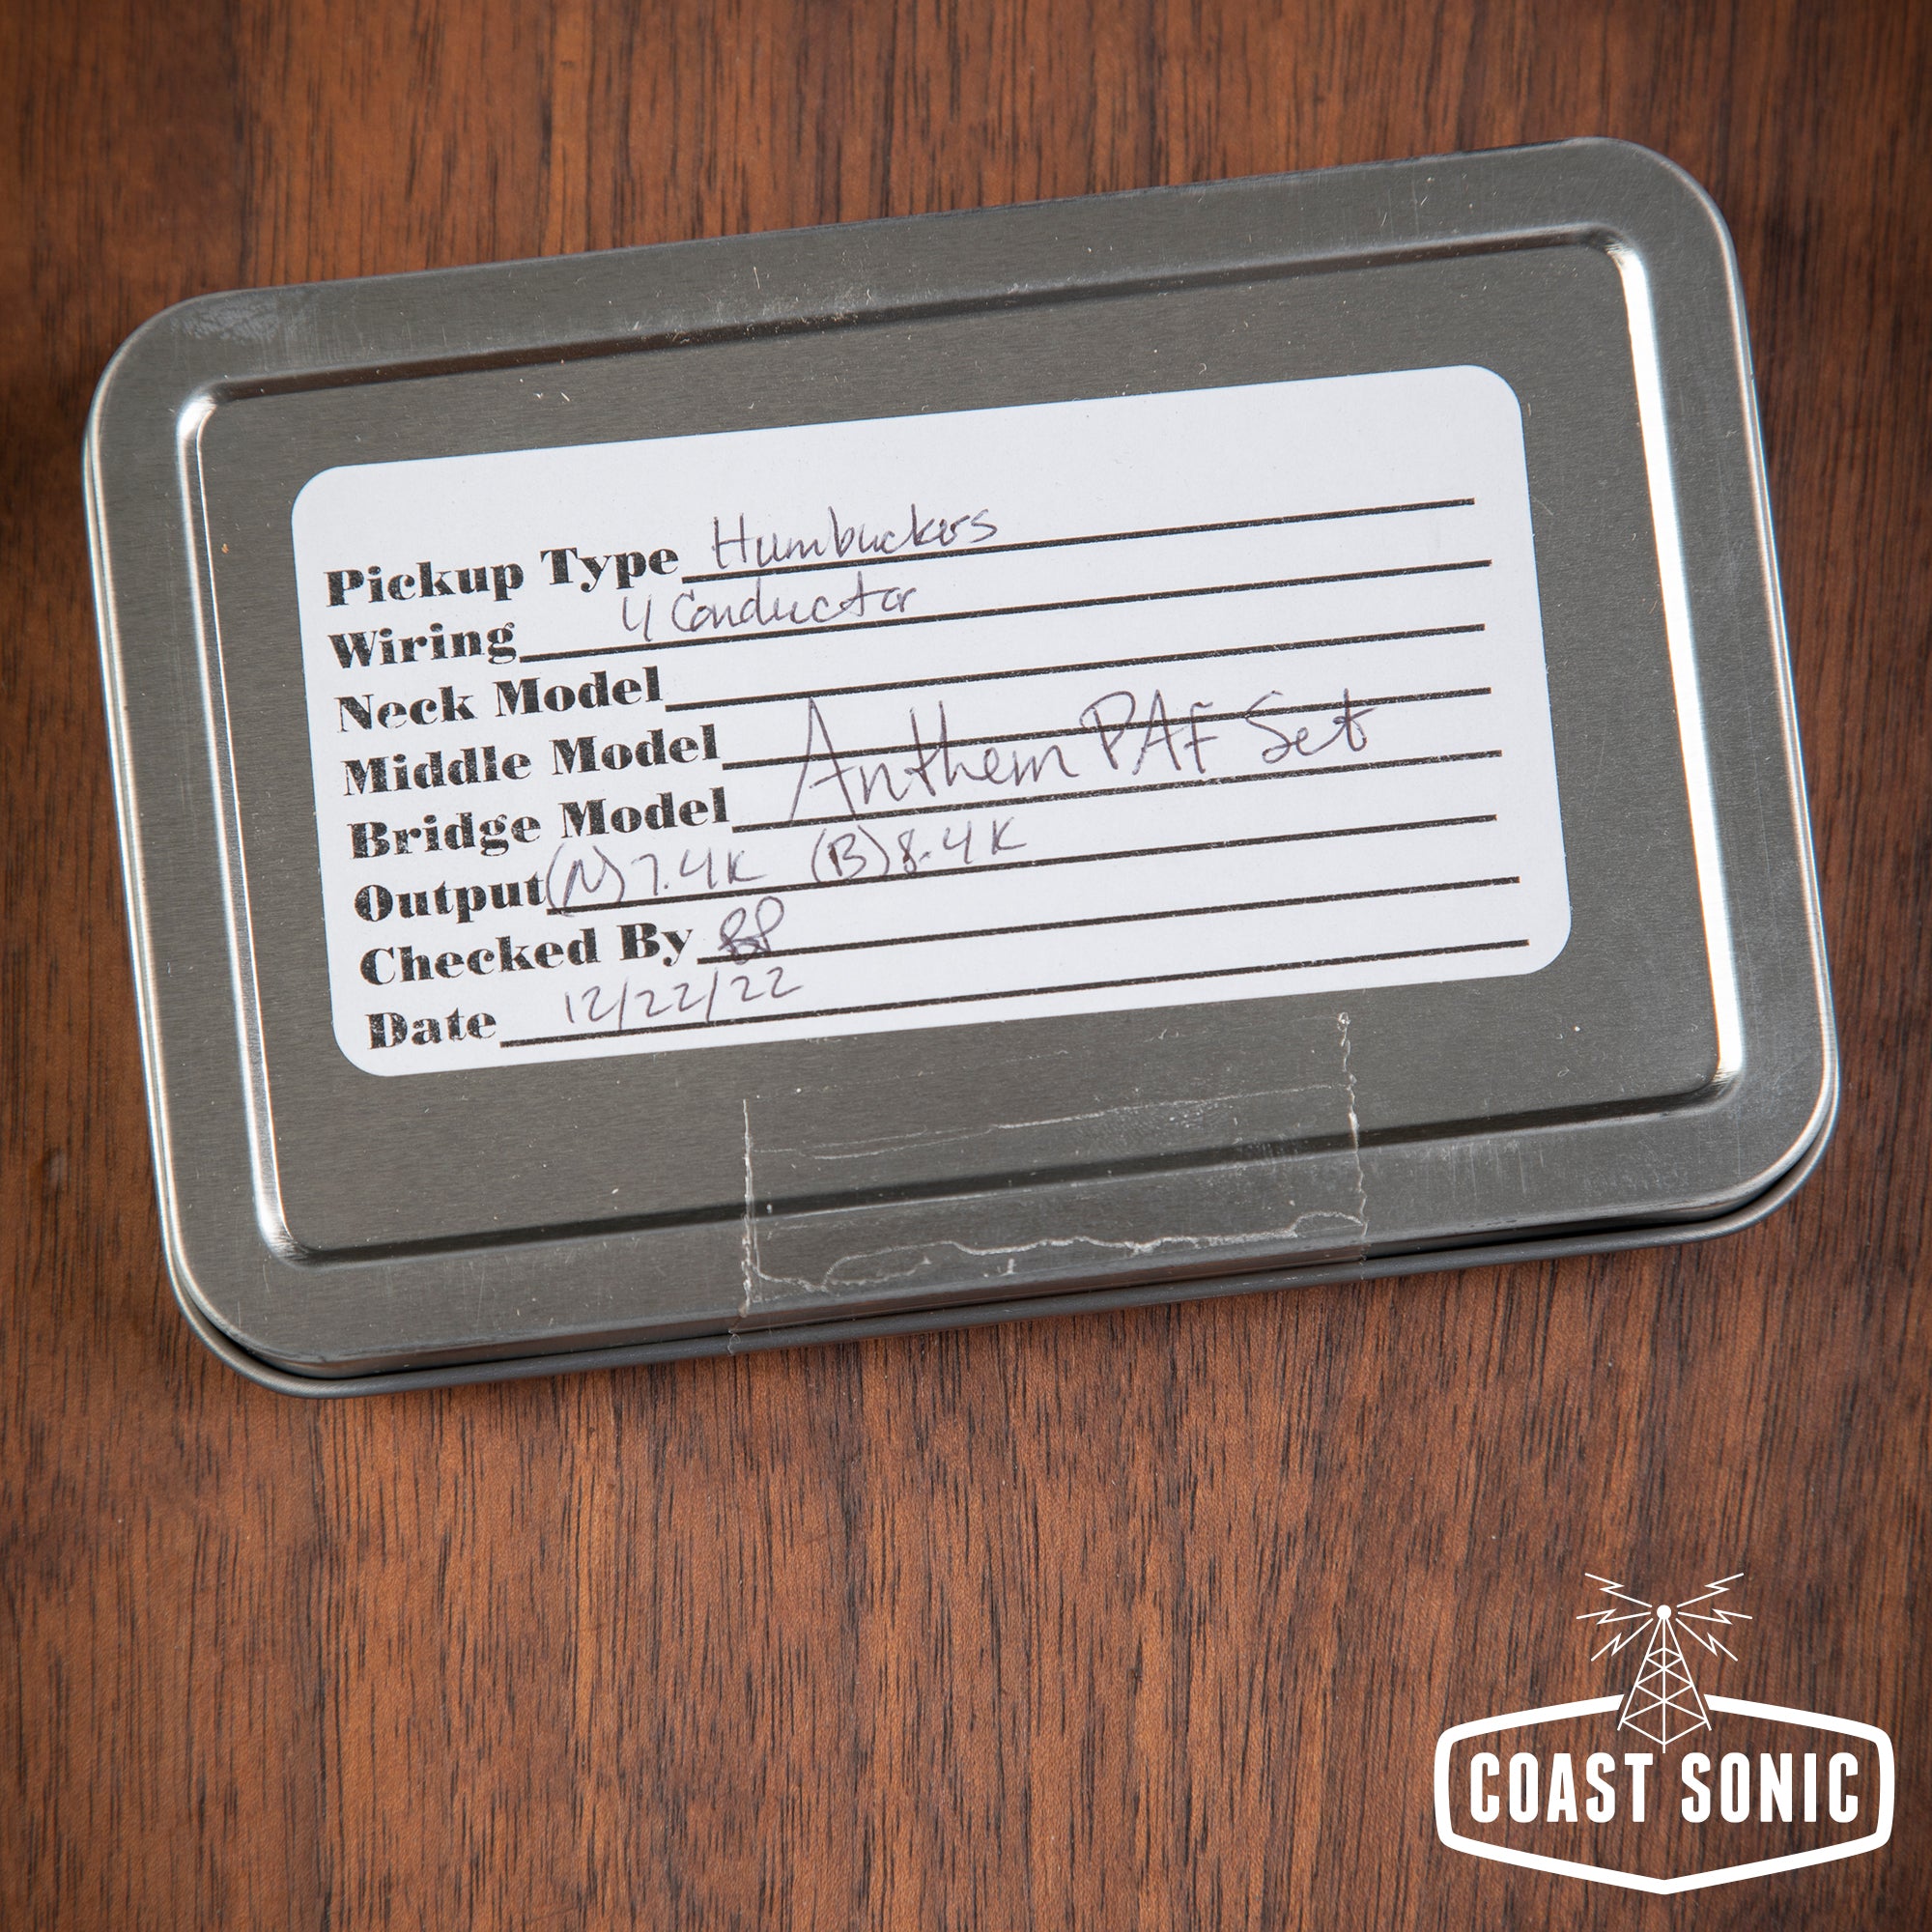 Pickup Type Humbuckers
Wiring 4 Conductor
Neck Model
Middle Model Anthem PAF Set
Bridge Model
Output (N) 7.4K (B) 8.4K
Checked By BP
Date 12/22/22
COAST SONIC